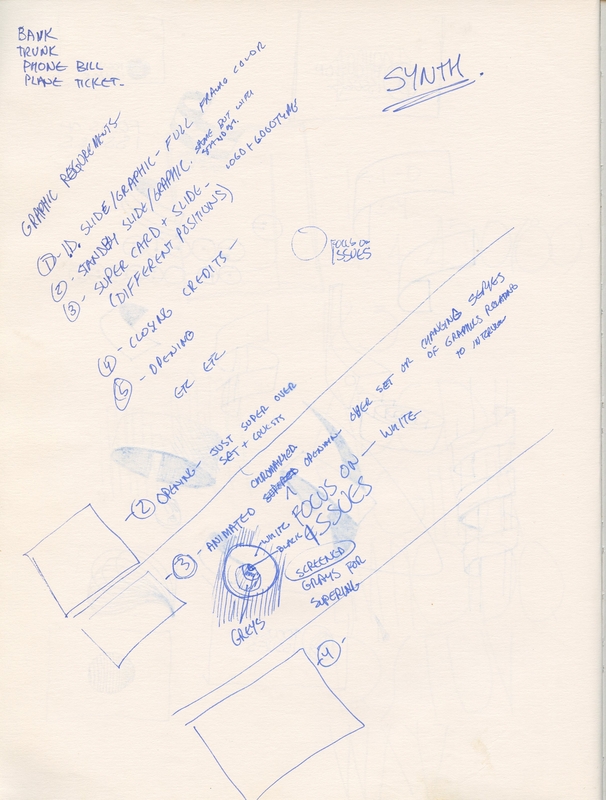 BANK
TRUNK
PHONE BILL
PLANE TICKET-
SYNTH.
GRAPHIC REQUIREMENTS
1 - I.D. SLIDE/GRAPHIC - FULL FRAMO COLOR
2 - STANDBY SLIDE/GRAPHIC. SAME BUT WITH
STANDBY.
3 - SUPER CARD + SLIDE - LOGO + LOGOTYPE
(DIFFERENT POSITIONS)
4 - CLOSING CREDITS -
5 - OPENING
ETC ETC
FOCUS ON
ISSUES
2 OPENING - JUST SUPER OVER
SET + GUESTS
CHROMAKEYED
3 - ANIMATED SUPERED OPENING OVER SET OR CHANGING SERIES
OF GRAPHICS RELATING
TO INTERVIEW
WHITE
BLACK
FOCUS ON - WHITE
ISSUES
GREYS
SCREENED
GRAYS FOR
SUPERING
4 -